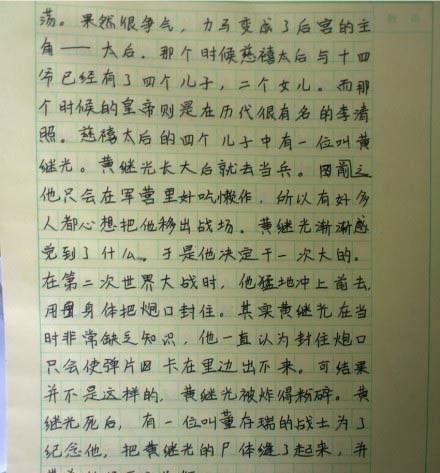 荡。果然很争气，力马变成了后宫的主
角——太后。那个时候慈禧太后与十四
爷已经有了四个儿子，二个女儿。而那
个时候的皇帝则是在历代很有名的李清
照。慈禧太后的四个儿子中有一位叫黄
继光。黄继光长大后就去当兵。因前之
他只会在军营里好吃懒作，所以有好多
人都心想把他移出战场。黄继光渐渐感
觉到了什么。于是他决定干一次大的。
在第二次世界大战时，他猛地冲上前去，
用自身体把炮口封住。其实黄继光在当
时非常缺乏知识，他一直认为封住炮口
只会使弹片卡在里边出不来。可结果
并不是这样的，黄继光被炸得粉碎。黄
继光死后，有一位叫董存瑞的战士为了
纪念他，把黄继光的尸体缝了起来，并